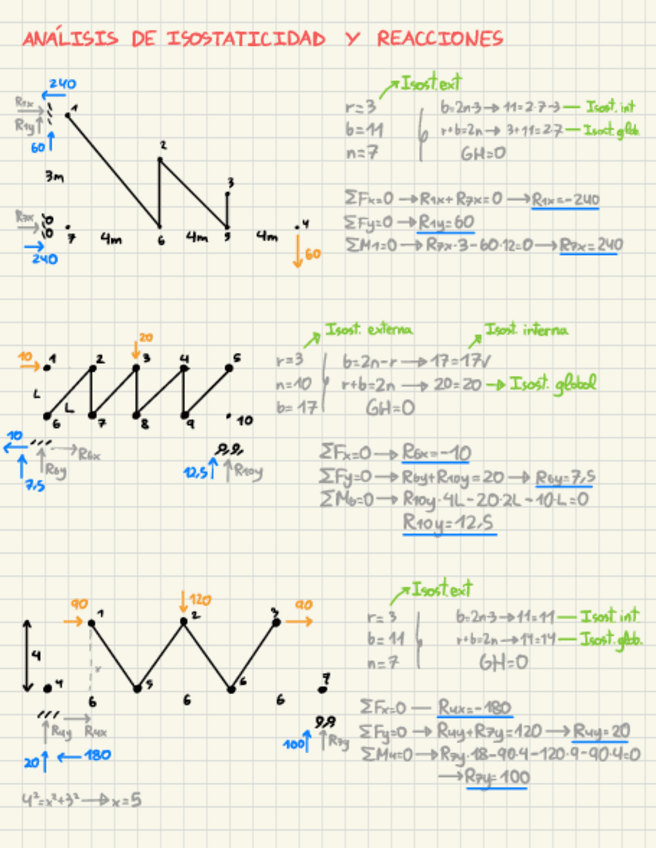 ANÁLISIS DE ISOSTATICIDAD Y REACCIONES
240
R1x
R1y
60
1
3m
2
3
R7x
240
7
4m
6
4m
5
4m
4
60
Isost.ext
r=3
b=11
n=7
b=2n-3 → 11=2·7-3 — Isost. int
r+b=2n → 3+11=2·7 — Isost. glob
GH=0
ΣFx=0 → R1x+R7x=0 → R1x=-240
ΣFy=0 → R1y=60
ΣM1=0 → R7x·3-60·12=0 → R7x=240
20
10
1
2
3
4
5
L
L
6
7
8
9
10
10
R6x
R6y
7,5
12,5
R10y
Isost. externa
Isost. interna
r=3
n=10
b=17
b=2n-r → 17=17√
r+b=2n → 20=20 → Isost. global
GH=0
ΣFx=0 → R6x=-10
ΣFy=0 → R6y+R10y=20 → R6y=7,5
ΣM6=0 → R10y·4L-20·2L-10·L=0
R10y=12,5
90
1
120
2
3
90
4
x
4
5
6
7
6
6
6
R4y
R4x
20
180
100
R7y
Isost.ext
r=3
b=11
n=7
b=2n-3 → 11=11 — Isost. int
r+b=2n → 14=14 — Isost. glob.
GH=0
ΣFx=0 — R4x=-180
ΣFy=0 → R4y+R7y=120 → R4y=20
ΣM4=0 → R7y·18-90·4-120·9-90·4=0
→ R7y=100
4²=x²+3² → x=5